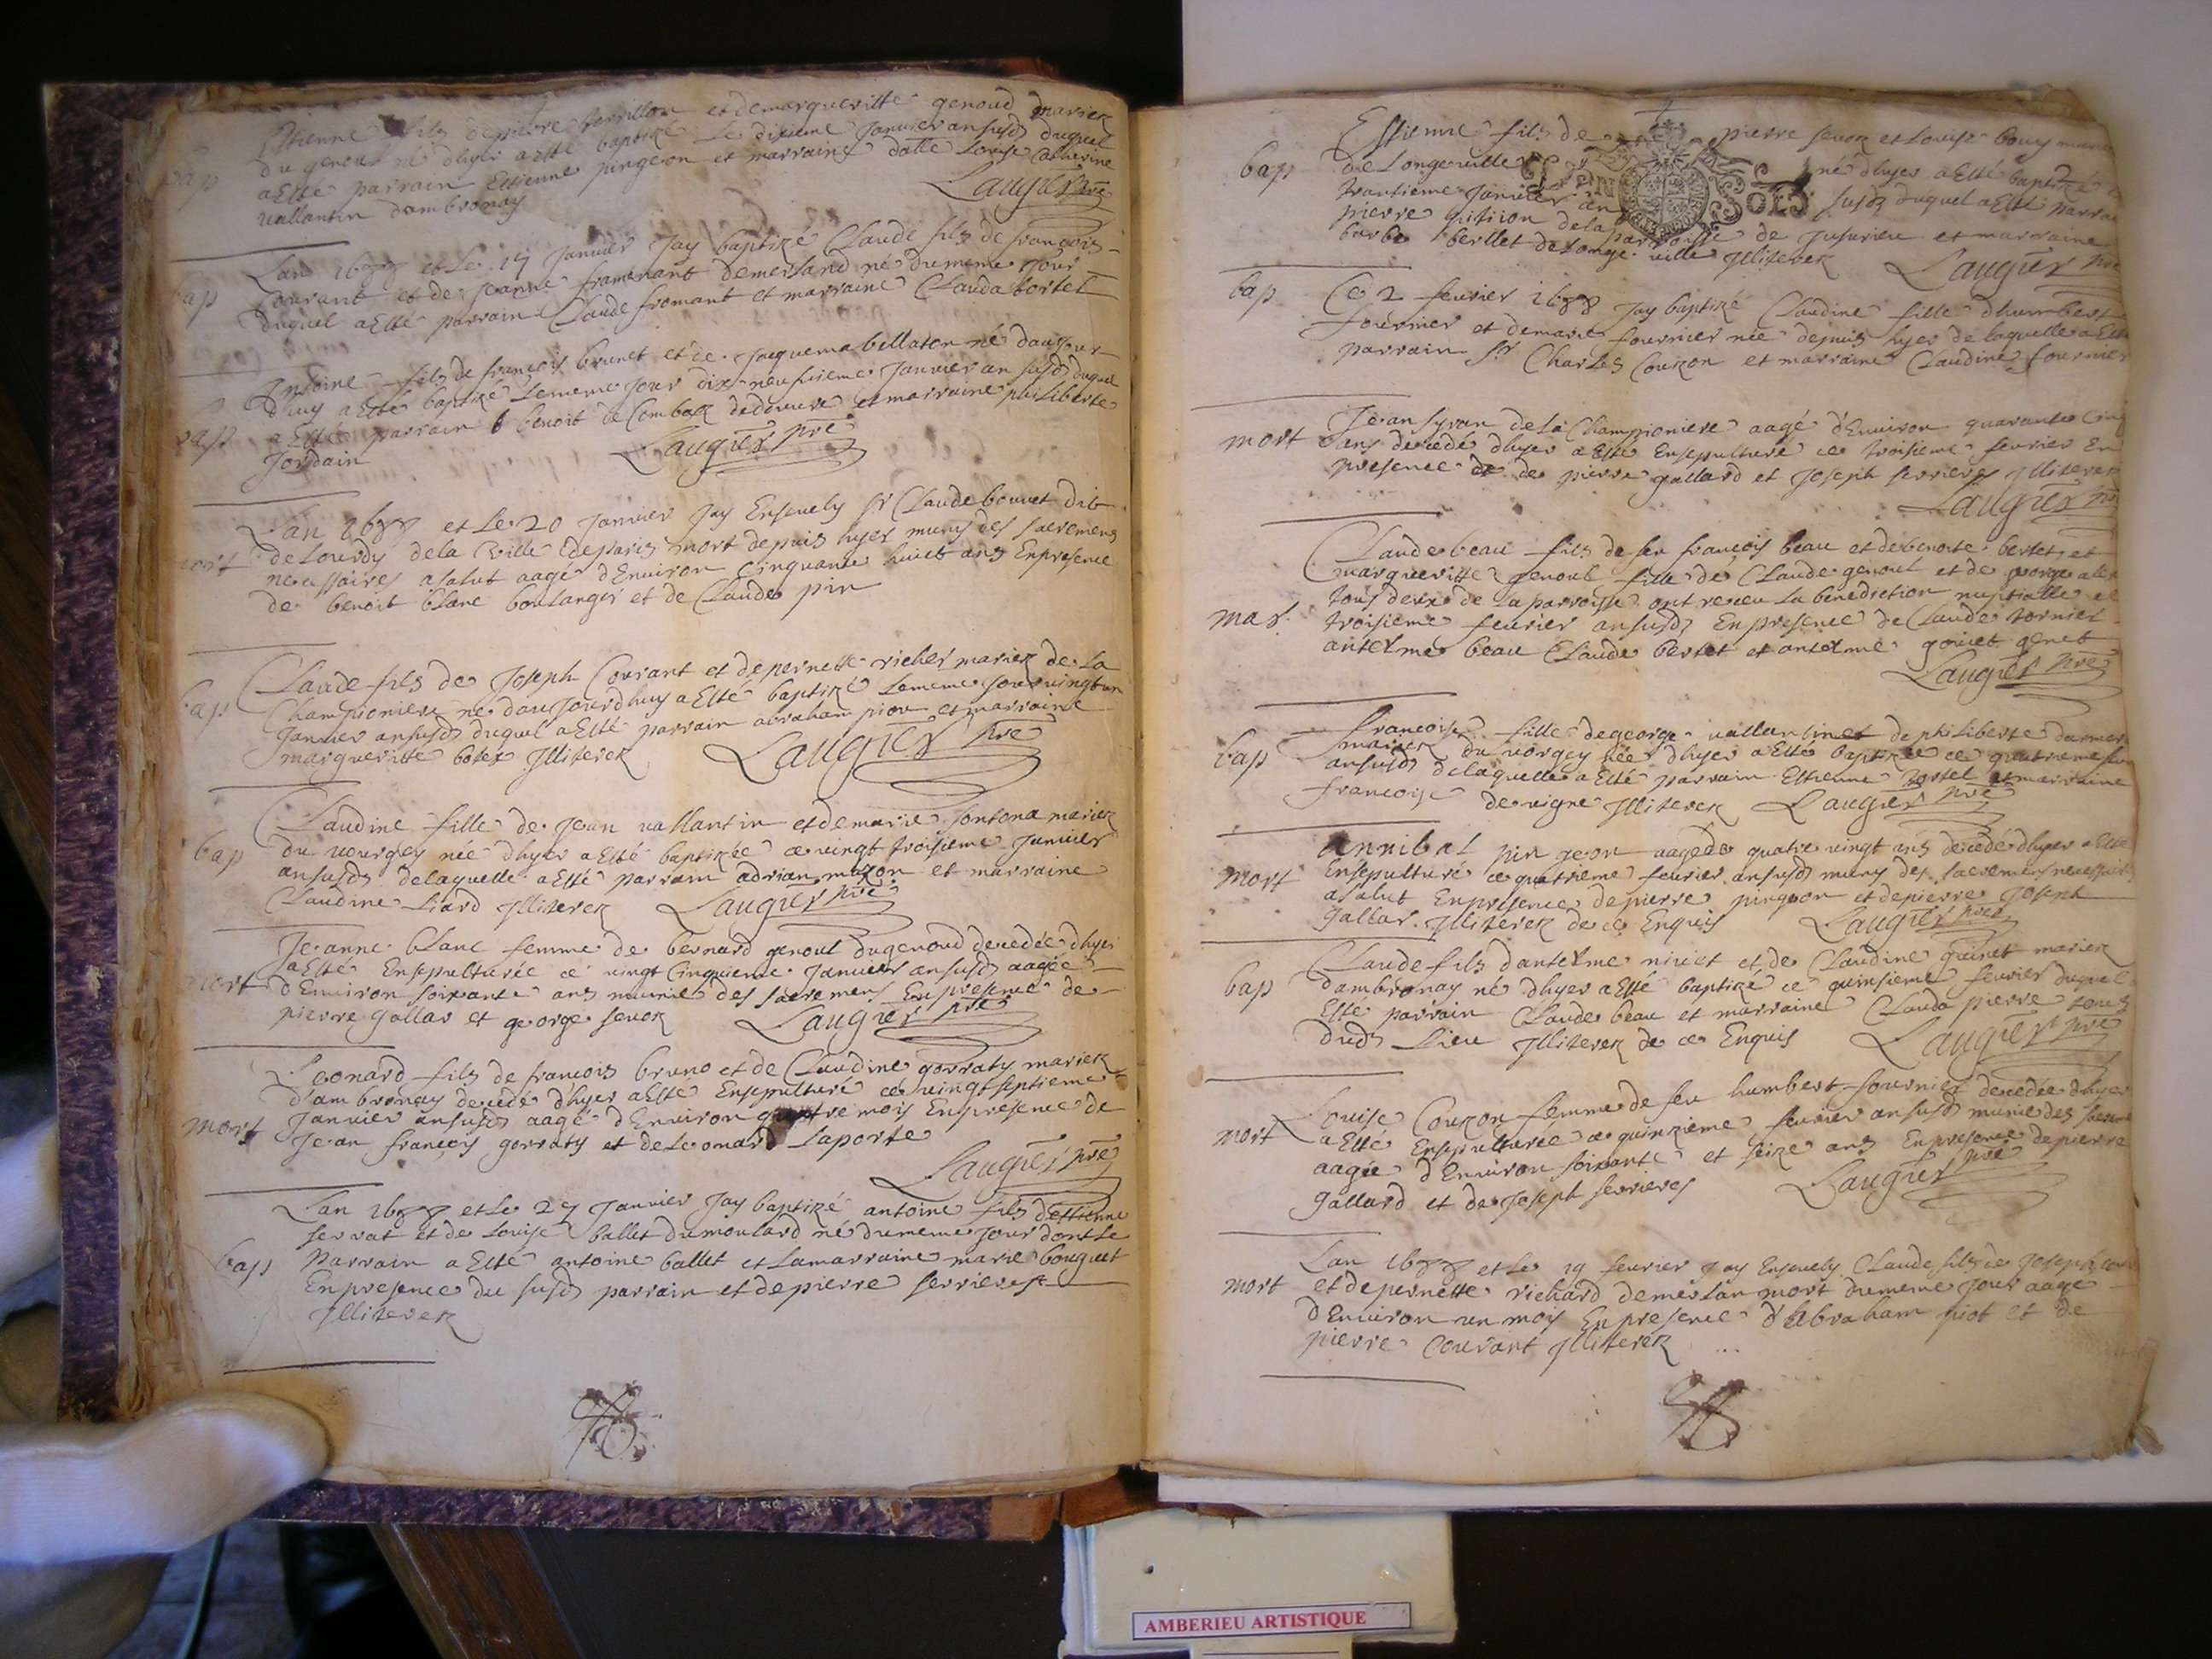 Estienne fils de pierre et de margueritte genoud mariez
bap
du genoud né dhyer a Esté baptizé Le dixieme Janvier an susd duquel
a Esté parrain Estienne pingeon et marraine Louise Catherine
vallantin dambronay
Laugier pre
Lan 1688 et Le 17 Janvier Jay baptizé Claude fils de francois
bap
Courant et de Jeanne framenant demerland né du meme Jour
duquel a Esté parrain Claude fromant et marraine Clauda bortel
Antoine fils de francois brunet et de Jaquema bellaton né daujour
dhuy a Esté baptizé Lememe Jour dix neufuieme Janvier an susd duquel
bap
a Esté parrain benoit de Combaz dedouure et marraine philiberte
Jordain
Laugier pre
Lan 1688 et Le 20 Janvier Jay Enseuely Sr Claude bouuet dit
mort
de Lourdy dela ville deparis mort depuis hyer muny des sacremens
necessaires asalut aagé dEnuiron Cinquante huict ans Enpresence
de benoit blanc boulanger et de Claude pin
Claude fils de Joseph Courant et depernette richer mariez de La
bap
Championiere né daujourdhuy a Esté baptizé Lememe Jour vingt un
Janvier ansusd duquel a Esté parrain abraham piou et marraine
margueritte botex Jlliterez
Laugier pre
Claudine fille de Jean vallantin et demarie fontena mariez
bap
du vorgey née dhyer a Esté baptizée ce vingt troisieme Janvier
ansusd delaquelle a Esté parrain adrian mazon et marraine
Claudine Liard Jlliterez
Laugier pre
Jeanne blanc femme de bernard genoul dugenoud decedée dhyer
a Esté Ensepulturée ce vingt Cinquieme Janvier ansusd aagée
mort
dEnuiron soixante ans munie des sacremens Enpresence de
pierre gallar et george seuoz
Laugier pre
Leonard fils de francois bruno et de Claudine gorraty mariez
dambronay decedé dhyer a Esté Ensepulturé ce vingt septieme
mort
Janvier ansusd aagé dEnuiron quattre mois Enpresence de
Jean francois gorraty et de Leonard Laporte
Laugier pre
Lan 1688 et Le 27 Janvier Jay baptizé antoine fils dEstienne
serrat et de Louise ballet dumoulard né dumeme Jour dont Le
bap
parrain a Esté antoine ballet et Lamarraine marie bouquet
Enpresence du susd parrain et depierre serrieres
Jlliterez
Estienne fils de pierre seuoz et Louise bouy
bap
de Longeuille né dhyer a Esté baptizé
trantieme Janvier an susd duquel a Esté parrain
pierre dela parroisse de Jusurieu et marraine
barbe berllet de Longe ville Jlliterez
Laugier pre
bap
Ce 2 feurier 1688 Jay baptizé Claudine fille dhumbert
fournier et demarie fournier née depuis hyer de laquelle a Esté
parrain Sr Charles Couzon et marraine Claudine fournier
Jean syran dela Championiere aagé dEnuiron quarante Cinq
mort
ans decedé dhyer a Esté Ensepulturé ce troisieme feurier En
presence de pierre gallard et Joseph serrieres Jlliterez
Laugier pre
Claude beau fils de feu francois beau et debenoite bertet et
margueritte genoul fille de Claude genoul et de
tous deux de La parroisse ont receu La benediction nuptialle ce
mar.
troisieme feurier ansusd Enpresence de Claude tornier
antelme beau Claude bertet et antelme gouet genet
Laugier pre
francoise fille degeorge vallantin et de philiberte
mariez du vorgey née dhyer a Esté baptizée ce quatrieme
bap
ansusd delaquelle a Esté parrain Estienne bortel et marraine
francoise de vigne Jlliterez
Laugier pre
annibal pingeon aagéde quatre vingt ans decedé dhyer a Esté
mort
Ensepulturé ce quatrieme feurier ansusd muny des sacremens necessaires
asalut Enpresence depierre pingeon et depierre Joseph
gallar Jlliterez de ce Enquis
Laugier pre
Claude fils dantelme niuet et de Claudine guinet mariez
bap
dambronay né dhyer a Esté baptizé ce quinsieme feurier duquel
Esté parrain Claude beau et marraine Clauda pierre tous
dud Lieu Jlliterez de ce Enquis
Laugier pre
Louise Couzon femme de feu humbert fournier decedée dhyer
mort
a Esté Ensepulturée ce quinzieme feurier ansusd munie des
aagée dEnuiron soixante et seize ans Enpresence depierre
gallard et de Joseph serrieres
Laugier pre
Lan 1688 et Le 19 feurier Jay Enseuely Claude fils de Joseph
mort
et depernette richard demerlan mort dumeme Jour aagé
dEnuiron un mois Enpresence dAbraham piot et de
pierre Courant Jlliterez
AMBERIEU ARTISTIQUE